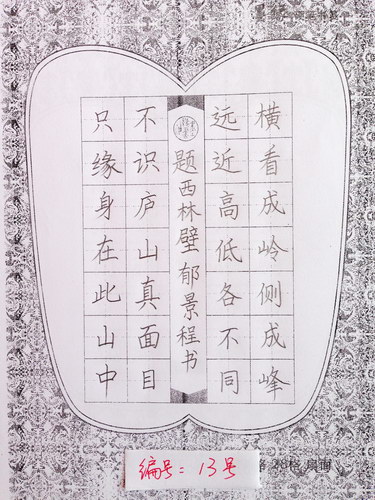 横看成岭侧成峰
远近高低各不同
题西林壁 郁景程书
不识庐山真面目
只缘身在此山中
编号：13号